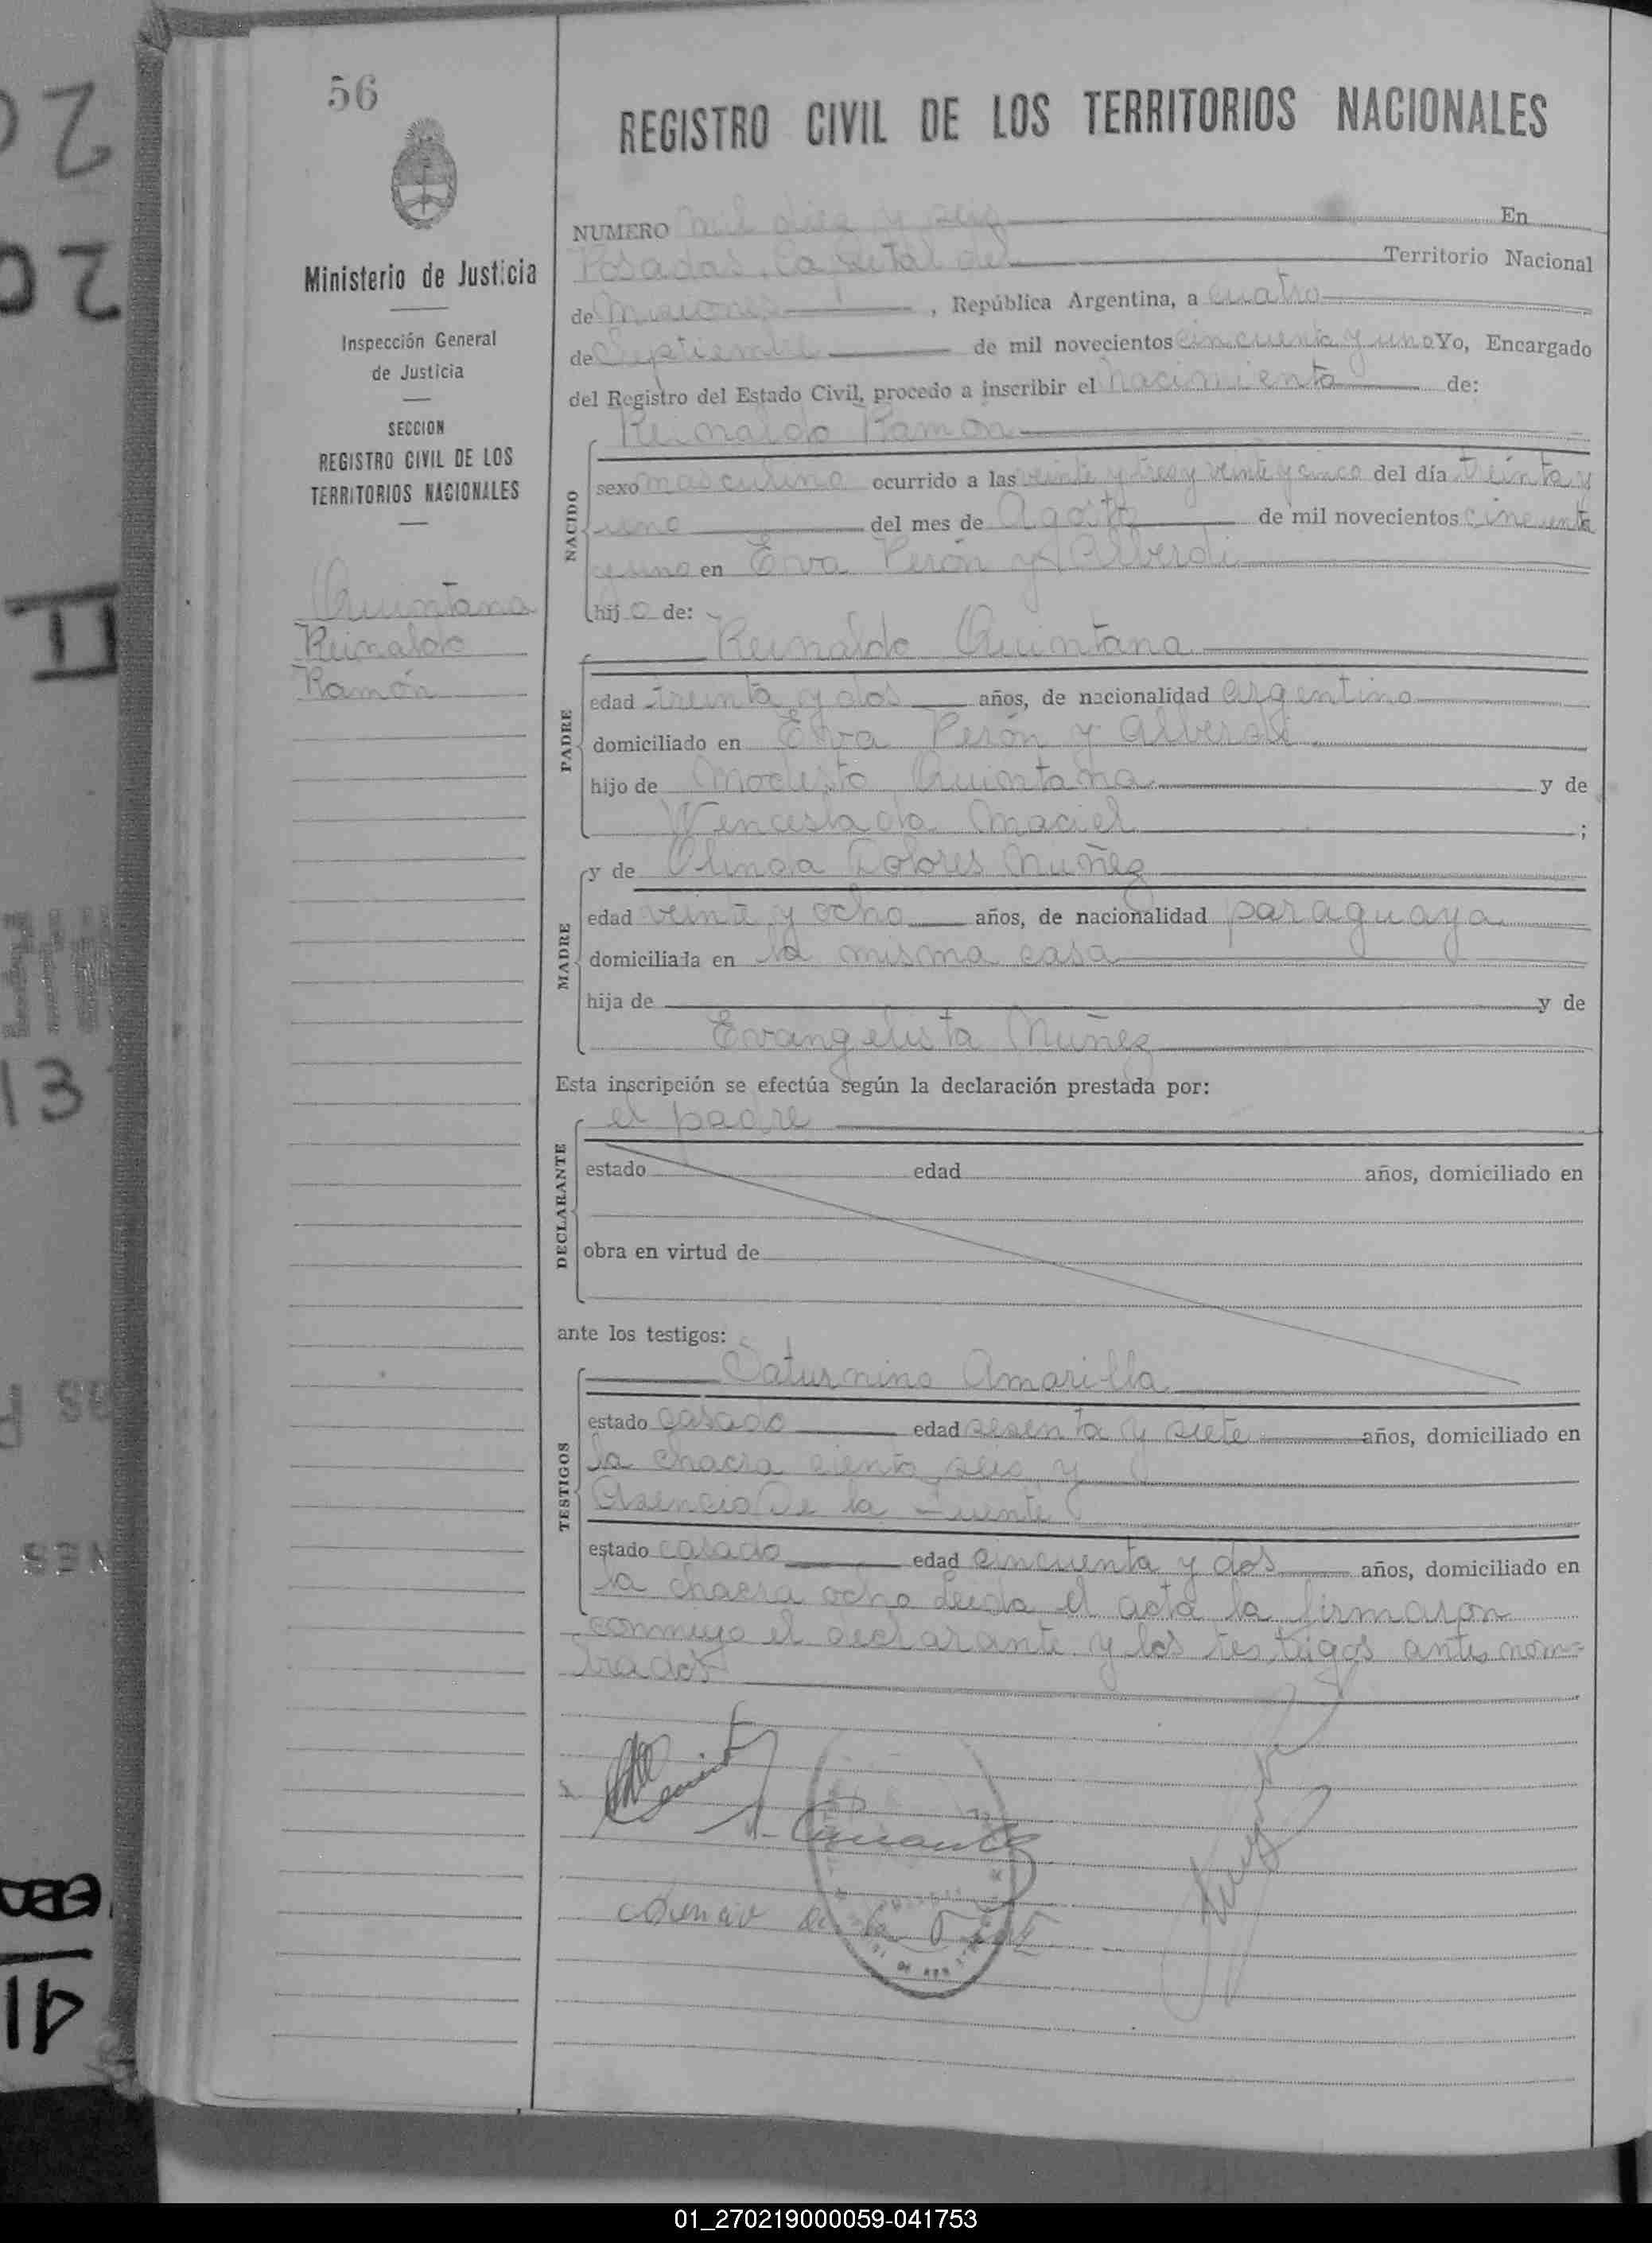 56
REGISTRO CIVIL DE LOS TERRITORIOS NACIONALES
Ministerio de Justicia
Inspección General
de Justicia
SECCION
REGISTRO CIVIL DE LOS
TERRITORIOS NACIONALES
Quintana
Reinaldo
Ramón
NUMERO mil diez y seis En
Posadas, Capital del Territorio Nacional
de Misiones, República Argentina, a cuatro
de Septiembre de mil novecientos cincuenta y uno Yo, Encargado
del Registro del Estado Civil, procedo a inscribir el nacimiento de:
NACIDO
Reinaldo Ramón
sexo masculino ocurrido a las veinte y tres y veinte y cinco del día treinta y
uno del mes de Agosto de mil novecientos cincuenta
y uno en Eva Perón y Alberdi
hijo de:
PADRE
Reinaldo Quintana
edad treinta y dos años, de nacionalidad argentino
domiciliado en Eva Perón y Alberdi
hijo de Modesto Quintana y de
Wenceslada Maciel ;
MADRE
y de Olinda Dolores Nuñez
edad veinte y ocho años, de nacionalidad paraguaya
domiciliada en la misma casa
hija de y de
Evangelista Nuñez
Esta inscripción se efectúa según la declaración prestada por:
DECLARANTE
el padre
estado edad años, domiciliado en
obra en virtud de
ante los testigos:
TESTIGOS
Saturnino Amarilla
estado casado edad sesenta y siete años, domiciliado en
la chacra ciento seis y
Asencio De la Fuente
estado casado edad cincuenta y dos años, domiciliado en
la chacra ocho Leida el acta la firmaron
conmigo el declarante y los testigos antes nom=
brados
01_270219000059-041753